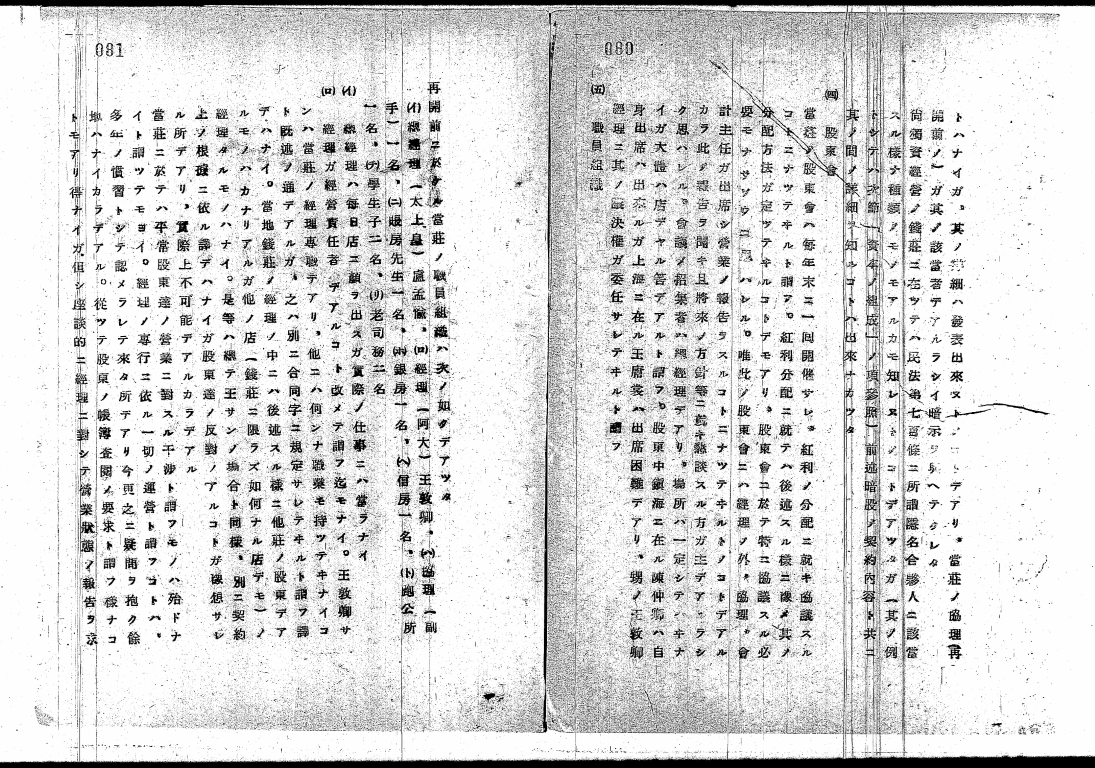 080
トハナイガ、其ノ詳細ハ發表出來ヌトノコトデアリ、當莊ノ協理(再
開前ノ)ガ其ノ該當者デアルラシイ暗示ヲ與ヘテクレタ
尙獨資經營ノ錢莊ニ在ツテハ民法第七百條ニ所謂隱名合夥人ニ該當
スル樣ナ種類ノモノモアルカモ知レヌトノコトデアツタガ(其ノ例
トシテハ次節ノ「資本ノ組成」ノ項參照)前述暗股ノ契約內容ト共ニ
其ノ間ノ詳細ヲ知ルコトハ出來ナカツタ
㈣ 股東會
當莊ノ股東會ハ每年末ニ一回開催サレ、紅利ノ分配ニ就キ協議スル
コトニナツテヰルト謂フ。紅利分配ニ就テハ後述スル樣ニ豫メ其ノ
分配方法ガ定ツテヰルコトデモアリ、股東會ニ於テ特ニ協議スル必
要モナサソウニ ハレル。唯此ノ股東會ニハ經理ノ外、協理、會
計主任ガ出席シ營業ノ報告ヲスルコトニナツテヰルトノコトデアル
カラ此ノ報告ヲ聞キ且將來ノ方針等ニ就キ懇談スル方ガ主デアルラシ
ク思ハレル。會議ノ招集者ハ總經理デアリ、場所ハ一定シテハヰナ
イガ大體ハ店デヤル筈デアルト謂フ。股東中鎭海ニ在ル陳仲卿ハ自
身出席ハ出來ルガ上海ニ在ル王府裳ハ出席困難デアリ、甥ノ王敦卿
經理ニ其ノ議決權ガ委任サレテヰルト謂フ
㈤ 職員組織
081
再開前ニ於ケル當莊ノ職員組織ハ次ノ如クデアツタ
(イ)總經理(太上皇)盧孟愉、(ロ)經理(阿大)王敦卿、(ハ)協理(副
手)一名、(ニ)賬房先生一名、(ホ)銀房一名、(ヘ)信房一名、(ト)跑公所
一名、(チ)學生子二名、(リ)老司務二名
(イ) 總經理ハ每日店ニ顏ヲ出スガ實際ノ仕事ニハ當ラナイ
(ロ) 經理ガ經營責任者デアルコト改メテ謂フ迄モナイ。王敦卿サ
ンハ當莊ノ經理專職デアリ、他ニハ何ンナ職業モ持ツテヰナイコ
ト既述ノ通デアルガ、之ハ別ニ合同字ニ規定サレテヰルト謂フ譯
デハナイ。當地錢莊ノ經理ノ中ニハ後述スル樣ニ他莊ノ股東デア
ルモノハカナリアルガ他ノ店(錢莊ニ限ラズ如何ナル店デモ)ノ
經理タルモノハナイ。是等ハ總テ王サンノ場合ト同樣、別ニ契約
上ノ根據ニ依ル譯デハナイガ股東達ノ反對ノアルコトガ豫想サレ
ル所デアリ、實際上不可能デアルカラデアル
當莊ニ於テハ平常股東達ノ營業ニ對スル干涉ト謂フモノハ殆ドナ
イト謂ツテモヨイ。經理ノ專行ニ依ル一切ノ運營ト謂フコトハ、
多年ノ慣習トシテ認メラレテ來タ所デアリ今更之ニ疑問ヲ抱ク餘
地ハナイカラデアル。從ツテ股東ノ帳簿查閱ノ要求ト謂フ樣ナコ
トモアリ得ナイガ、但シ座談的ニ經理ニ對シテ營業狀態ノ報告ヲ求